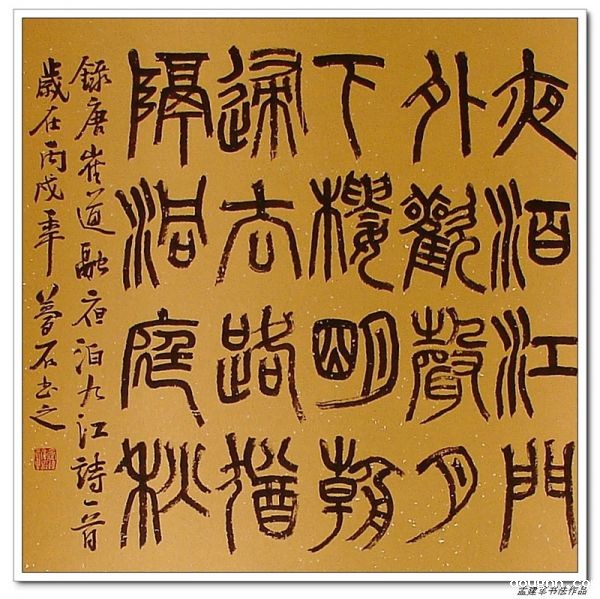 夜泊江門
外歡聲月
下樓明朝
歸去路猶
隔洞庭秋
錄唐崔道融夜泊九江詩一首
歲在丙戌年夢石書之
孟建军书法作品